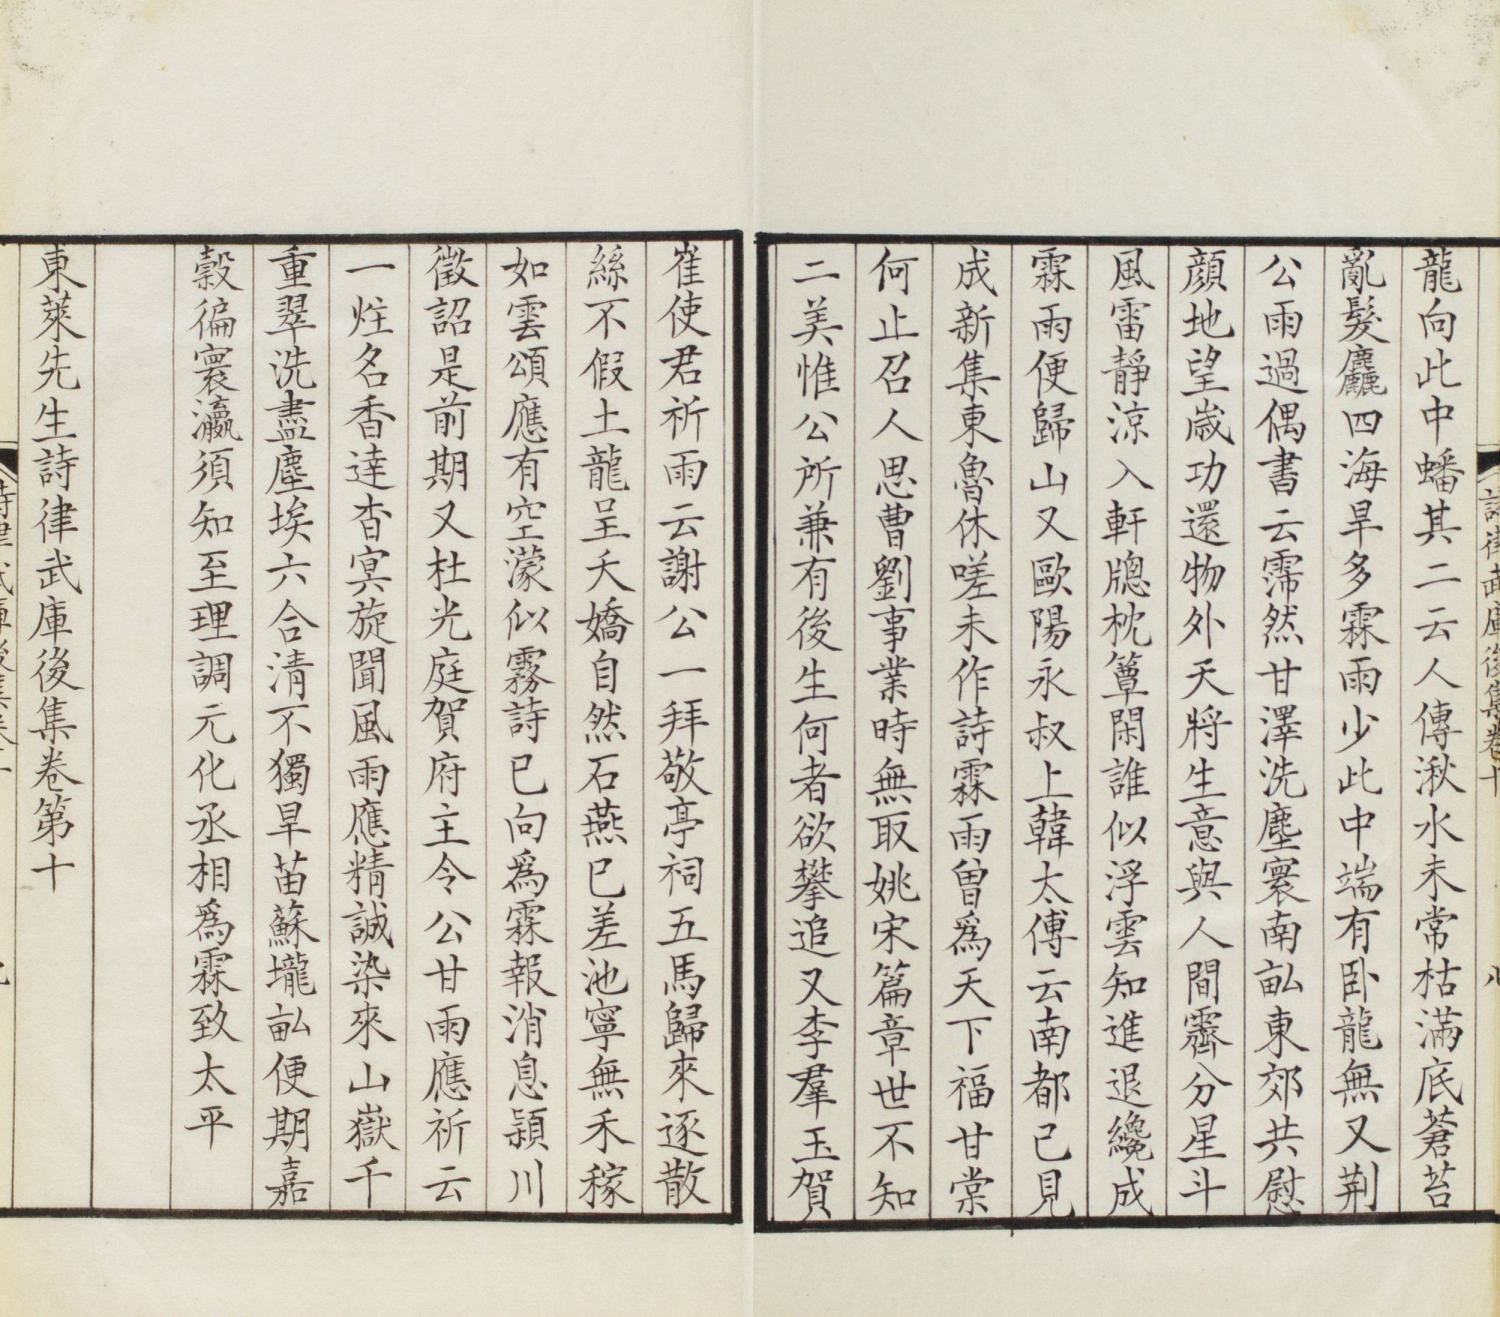 龍向此中蟠其二云人傳湫水未常枯滿底蒼苔
亂髮麤四海旱多霖雨少此中端有卧龍無又荆
公雨過偶書云霈然甘澤洗塵寰南畝東郊共慰
顔地望歲功還物外天將生意與人間霽分星斗
風雷靜涼入軒牕枕簟閑誰似浮雲知進退纔成
霖雨便歸山又歐陽永叔上韓太傅云南都已見
成新集東魯休嗟未作詩霖雨曾爲天下福甘棠
何止召人思曹劉事業時無取姚宋篇章世不知
二美惟公所兼有後生何者欲攀追又李羣玉賀
崔使君祈雨云謝公一拜敬亭祠五馬歸來逐散
絲不假土龍呈夭嬌自然石燕巳差池寧無禾稼
如雲頌應有空濛似霧詩已向爲霖報消息潁川
徵詔是前期又杜光庭賀府主令公甘雨應祈云
一炷名香達杳冥旋聞風雨應精誠染來山嶽千
重翠洗盡塵埃六合清不獨旱苗蘇壠畝便期嘉
穀徧寰瀛須知至理調元化丞相爲霖致太平
東萊先生詩律武庫後集卷第十
詩律武庫後集卷十